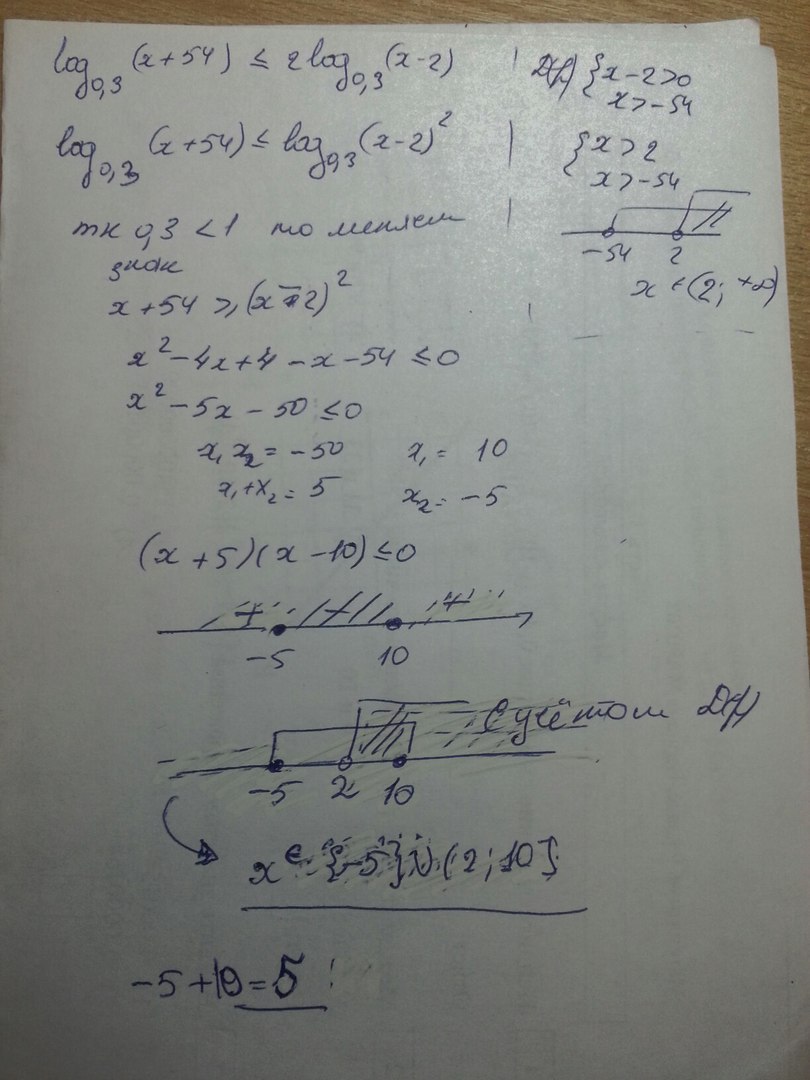 log₀,₃(x+54) ≤ 2log₀,₃(x-2)
log₀,₃(x+54) ≤ log₀,₃(x-2)²
тк 0,3 < 1 то меняем
знак
x+54 ≥ (x-2)²
x²-4x+4-x-54 ≤ 0
x²-5x-50 ≤ 0
x₁x₂ = -50 x₁ = 10
x₁+x₂ = 5 x₂ = -5
(x+5)(x-10) ≤ 0
-5 10
С учётом D(f)
-5 2 10
x ∈ {-5}∪(2;10]
-5+10=5
D(f) {x-2>0
x>-54
{x>2
x>-54
-54 2
x ∈ (2; +∞)